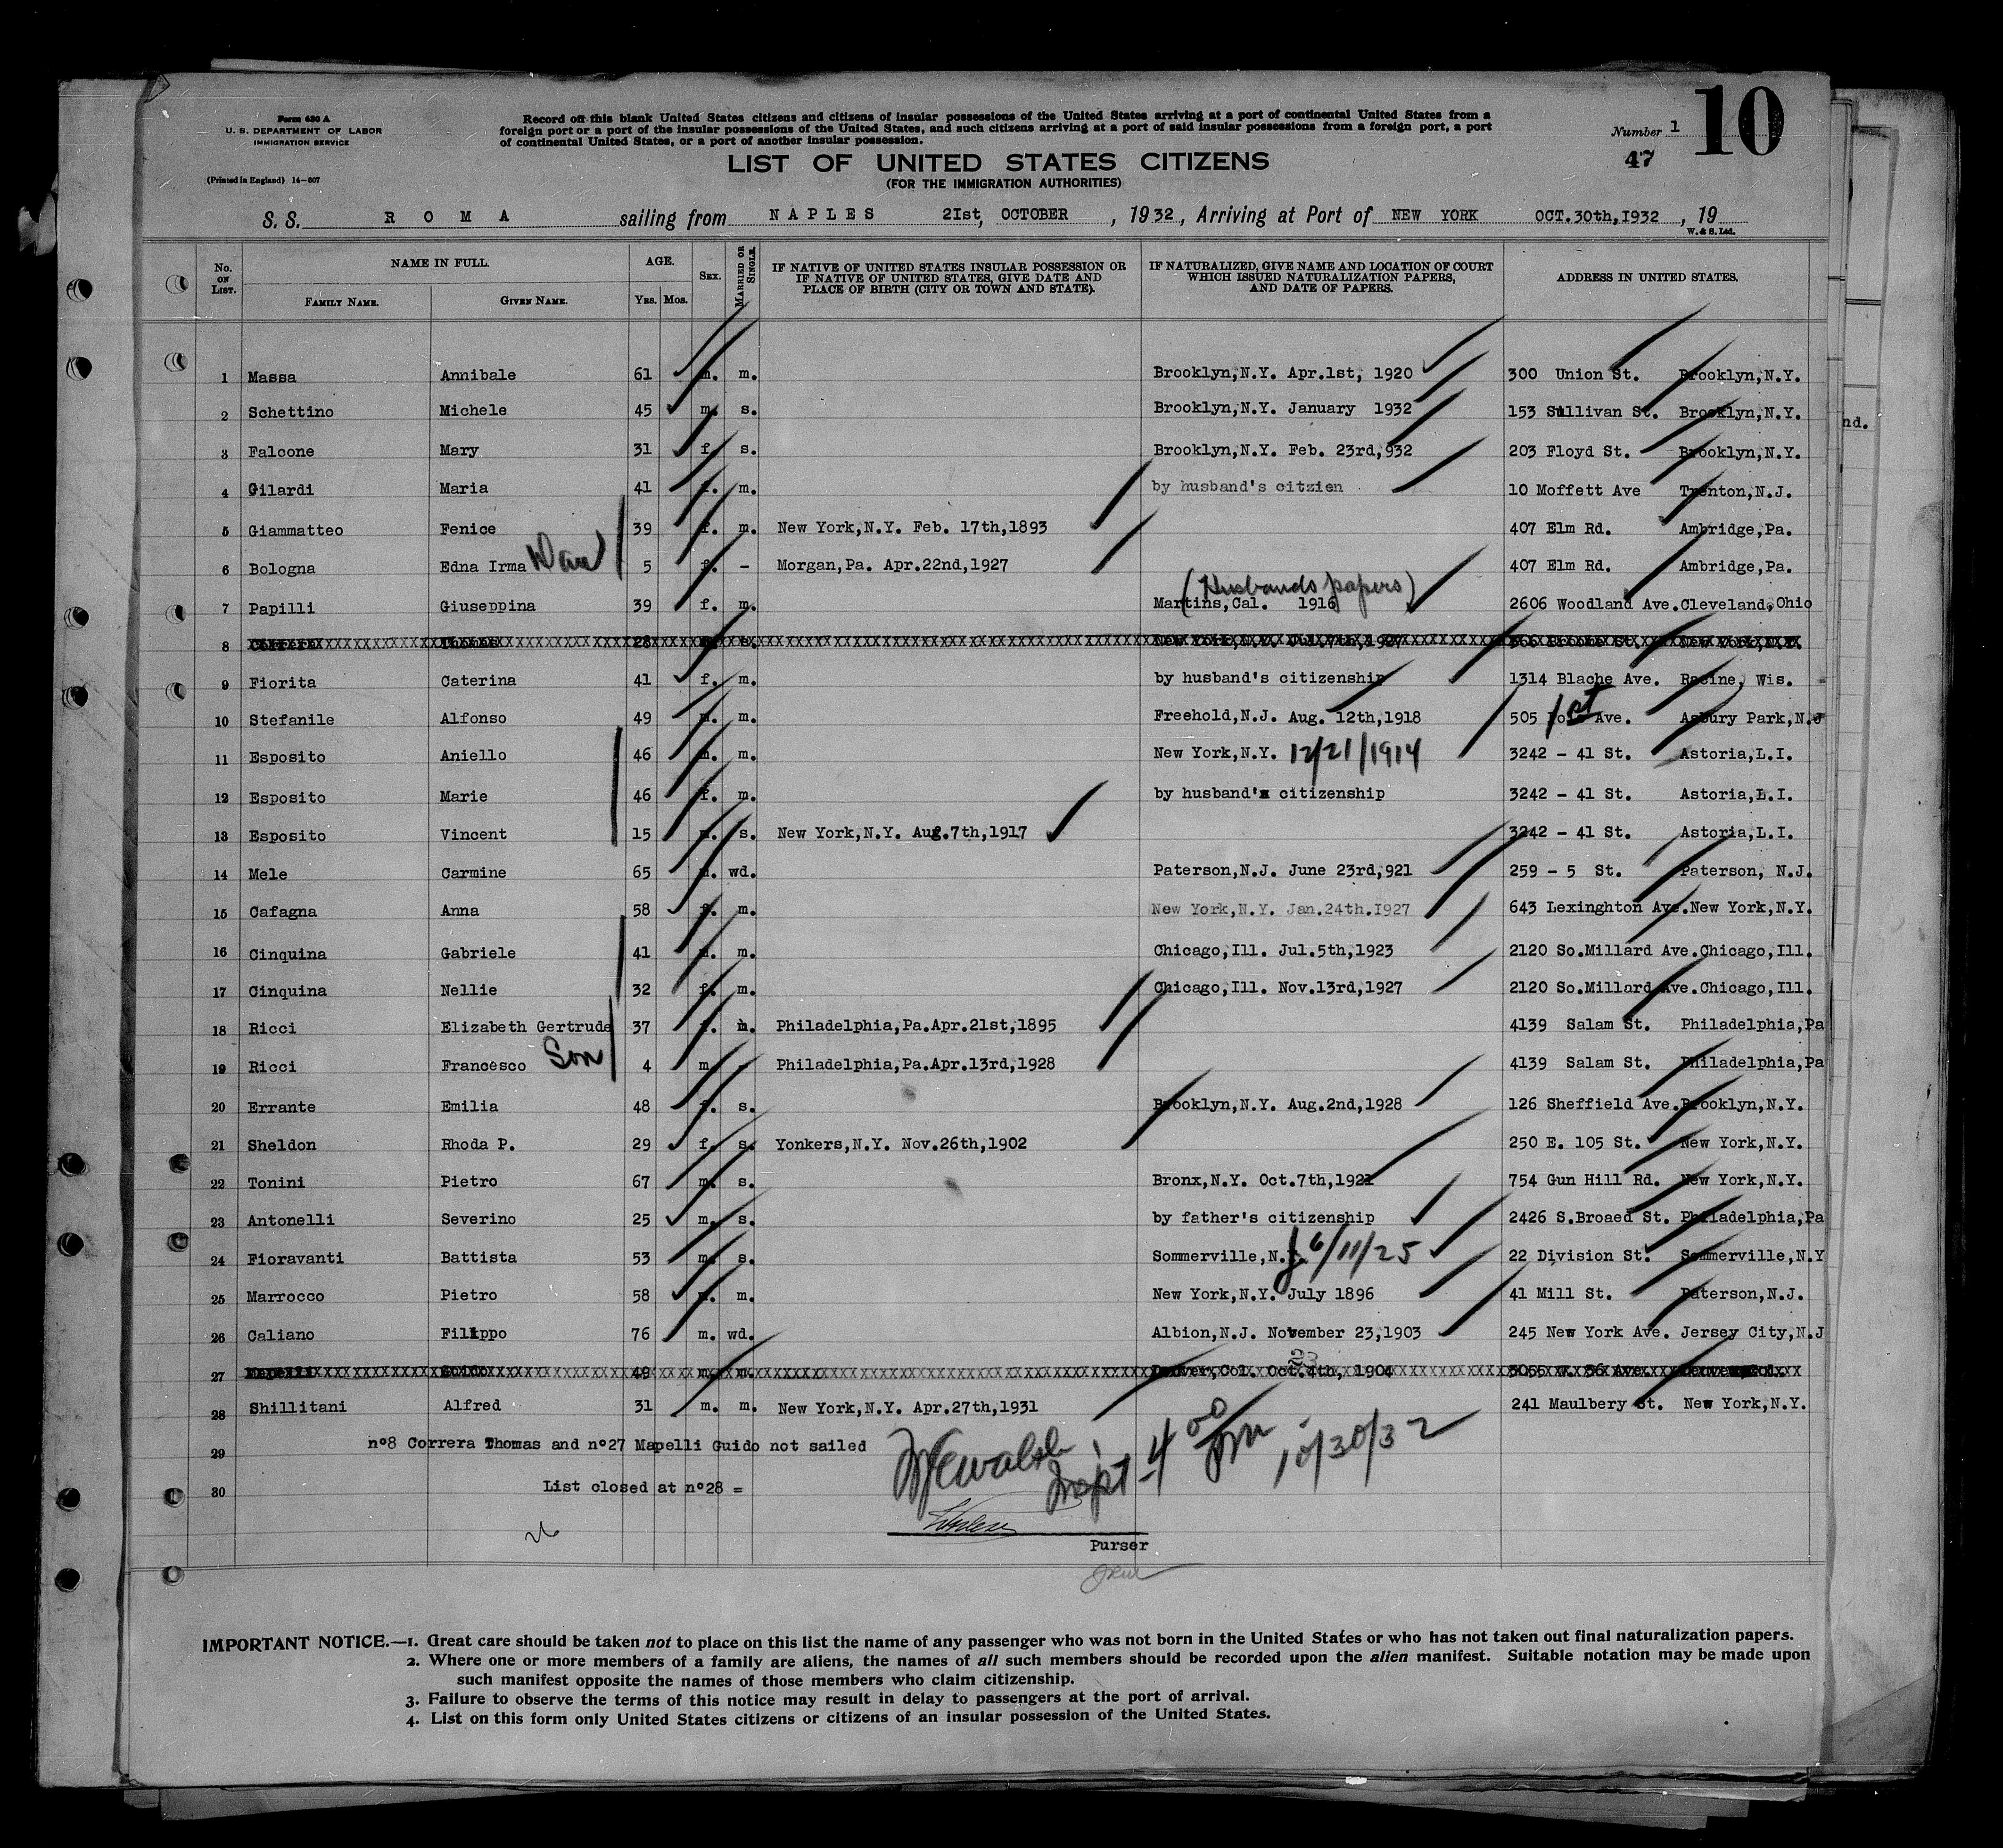 Form 630 A
U. S. DEPARTMENT OF LABOR
IMMIGRATION SERVICE
(Printed in England) 14—607
Record on this blank United States citizens and citizens of insular possessions of the United States arriving at a port of continental United States from a
foreign port or a port of the insular possessions of the United States, and such citizens arriving at a port of said insular possessions from a foreign port, a port
of continental United States, or a port of another insular possession.
Number 1
10
47
LIST OF UNITED STATES CITIZENS
(FOR THE IMMIGRATION AUTHORITIES)
S. S. R O M A sailing from NAPLES 2Ist, OCTOBER, 1932, Arriving at Port of NEW YORK OCT.30th,I932, 19
W. & S. Ltd.
No. ON LIST. NAME IN FULL. AGE. SEX. MARRIED OR SINGLE. IF NATIVE OF UNITED STATES INSULAR POSSESSION OR IF NATIVE OF UNITED STATES, GIVE DATE AND PLACE OF BIRTH (CITY OR TOWN AND STATE). IF NATURALIZED, GIVE NAME AND LOCATION OF COURT WHICH ISSUED NATURALIZATION PAPERS, AND DATE OF PAPERS. ADDRESS IN UNITED STATES.
FAMILY NAME. GIVEN NAME. YRS. MOS.
1 Massa Annibale 61 m. m. Brooklyn,N.Y. Apr.1st, 1920 300 Union St. Brooklyn,N.Y.
2 Schettino Michele 45 m. s. Brooklyn,N.Y. January 1932 153 Sullivan St. Brooklyn,N.Y.
3 Falcone Mary 31 f. s. Brooklyn,N.Y. Feb. 23rd,932 203 Floyd St. Brooklyn,N.Y.
4 Gilardi Maria 41 f. m. by husband's citzien 10 Moffett Ave Trenton,N.J.
5 Giammatteo Fenice 39 f. m. New York,N.Y. Feb. 17th,1893 407 Elm Rd. Ambridge,Pa.
6 Bologna Edna Irma Dau 5 f. - Morgan,Pa. Apr.22nd,1927 407 Elm Rd. Ambridge,Pa.
(Husbands papers)
7 Papilli Giuseppina 39 f. m. Martins,Cal. 1916 2606 Woodland Ave.Cleveland,Ohio
8 Correra Thomas 28 s. New York,N.Y. Jul.7th,1927 Broome St. New York,N.Y.
9 Fiorita Caterina 41 f. m. by husband's citizenship 1314 Blache Ave. Racine, Wis.
10 Stefanile Alfonso 49 m. m. Freehold,N.J. Aug. 12th,1918 505 1st Ave. Asbury Park,N.J
11 Esposito Aniello 46 m. m. New York,N.Y. 12/21/1914 3242 - 41 St. Astoria,L.I.
12 Esposito Marie 46 f. m. by husband's citizenship 3242 - 41 St. Astoria,L.I.
13 Esposito Vincent 15 m. s. New York,N.Y. Aug.7th,1917 3242 - 41 St. Astoria,L.I.
14 Mele Carmine 65 m. wd. Paterson,N.J. June 23rd,921 259 - 5 St. Paterson, N.J.
15 Cafagna Anna 58 f. m. New York,N.Y. Jan.24th.I927 643 Lexinghton Ave.New York,N.Y.
16 Cinquina Gabriele 41 m. m. Chicago,Ill. Jul.5th,1923 2120 So.Millard Ave.Chicago,Ill.
17 Cinquina Nellie 32 f. m. Chicago,Ill. Nov.13rd,1927 2120 So.Millard Ave.Chicago,Ill.
18 Ricci Elizabeth Gertrude 37 f. m. Philadelphia,Pa.Apr.21st,1895 4139 Salam St. Philadelphia,Pa
19 Ricci Francesco Son 4 m - Philadelphia,Pa.Apr.13rd,1928 4139 Salam St. Philadelphia,Pa
20 Errante Emilia 48 f. s. Brooklyn,N.Y. Aug.2nd,1928 126 Sheffield Ave.Brooklyn,N.Y.
21 Sheldon Rhoda P. 29 f. s. Yonkers,N.Y. Nov.26th,1902 250 E. 105 St. New York,N.Y.
22 Tonini Pietro 67 m. s. Bronx,N.Y. Oct.7th,1921 754 Gun Hill Rd. New York,N.Y.
23 Antonelli Severino 25 m. s. by father's citizenship 2426 S.Broaed St. Philadelphia,Pa
24 Fioravanti Battista 53 m. s. Sommerville,N.J. 6/11/25 22 Division St. Sommerville,N.Y
25 Marrocco Pietro 58 m. m. New York,N.Y. July 1896 41 Mill St. Paterson,N.J.
26 Caliano Filippo 76 m. wd. Albion,N.J. November 23,1903 245 New York Ave. Jersey City,N.J
27 Mapelli Guido 49 m. m. Denver,Col. Oct.4th, 1904 3055 W. 36 Ave. Denver,Col.
28 Shillitani Alfred 31 m. m. New York,N.Y. Apr.27th,1931 241 Maulbery St. New York,N.Y.
29 nº8 Correra Thomas and nº27 Mapelli Guido not sailed
Inspt 4 00 pm 10/30/32
30 List closed at nº28 =
26
Purser
IMPORTANT NOTICE.—1. Great care should be taken not to place on this list the name of any passenger who was not born in the United States or who has not taken out final naturalization papers.
2. Where one or more members of a family are aliens, the names of all such members should be recorded upon the alien manifest. Suitable notation may be made upon
such manifest opposite the names of those members who claim citizenship.
3. Failure to observe the terms of this notice may result in delay to passengers at the port of arrival.
4. List on this form only United States citizens or citizens of an insular possession of the United States.
nd.